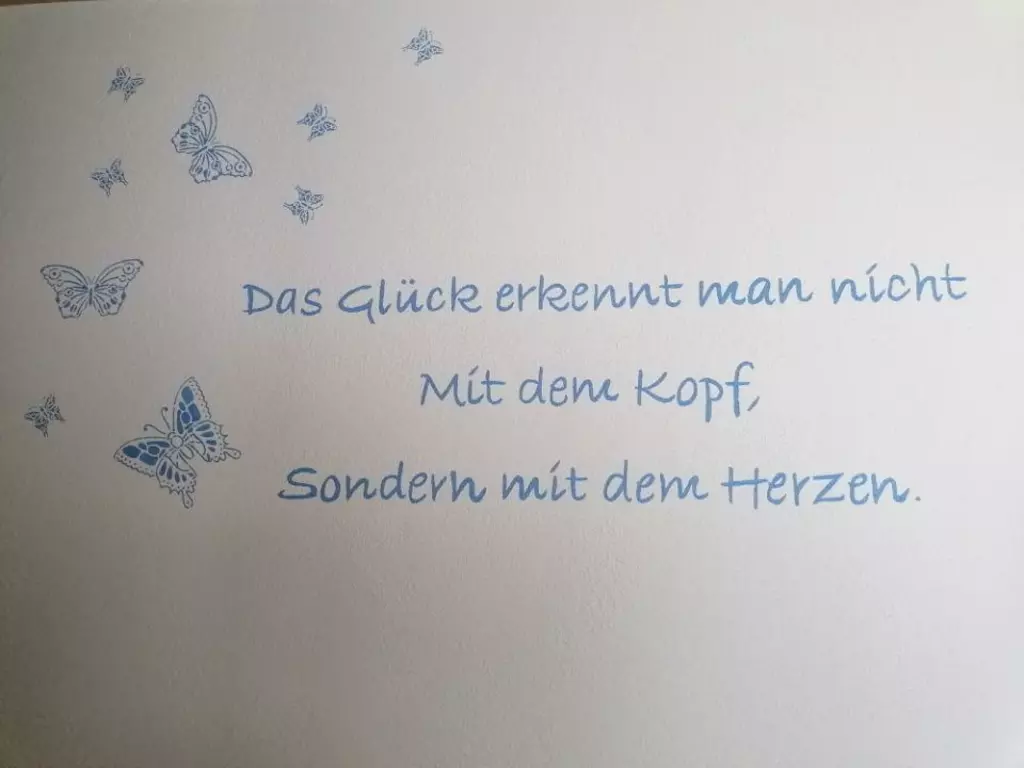 Das Glück erkennt man nicht
Mit dem Kopf,
Sondern mit dem Herzen.